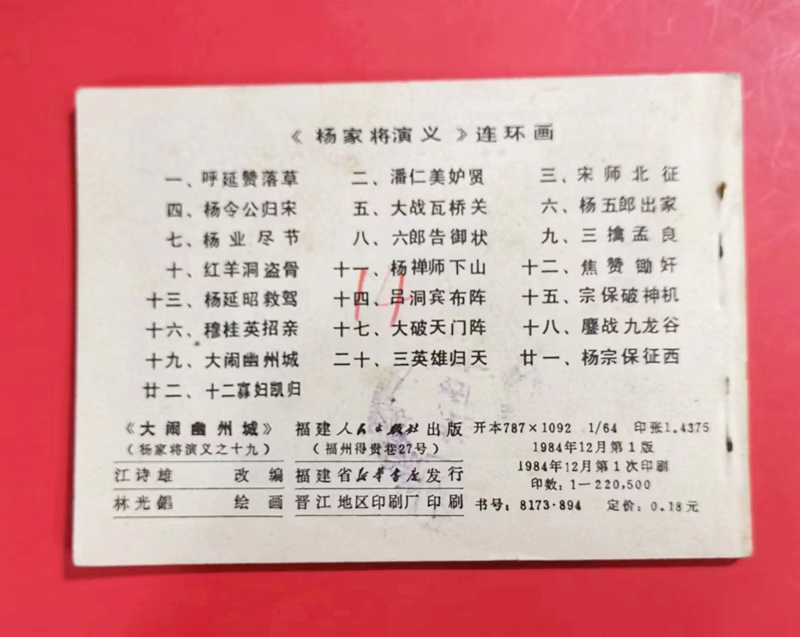 《杨家将演义》连环画
一、呼延赞落草 二、潘仁美妒贤 三、宋师北征
四、杨令公归宋 五、大战瓦桥关 六、杨五郎出家
七、杨业尽节 八、六郎告御状 九、三擒孟良
十、红羊洞盗骨 十一、杨禅师下山 十二、焦赞锄奸
十三、杨延昭救驾 十四、吕洞宾布阵 十五、宗保破神机
十六、穆桂英招亲 十七、大破天门阵 十八、鏖战九龙谷
十九、大闹幽州城 二十、三英雄归天 廿一、杨宗保征西
廿二、十二寡妇凯归
14
《大闹幽州城》
(杨家将演义之十九)
江诗雄 改编
林光 绘画
福建人民出版社出版
(福州得贵巷27号)
福建省新华书店发行
晋江地区印刷厂印刷
开本787×1092 1/64 印张1.4375
1984年12月第1版
1984年12月第1次印刷
印数:1—220,500
书号:8173·894 定价:0.18元